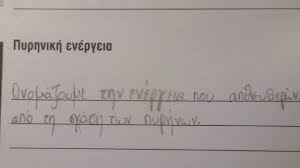 Πυρηνική ενέργεια
Ονομάζουμε την ενέργεια που
από τη σχάση των πυρήνων.